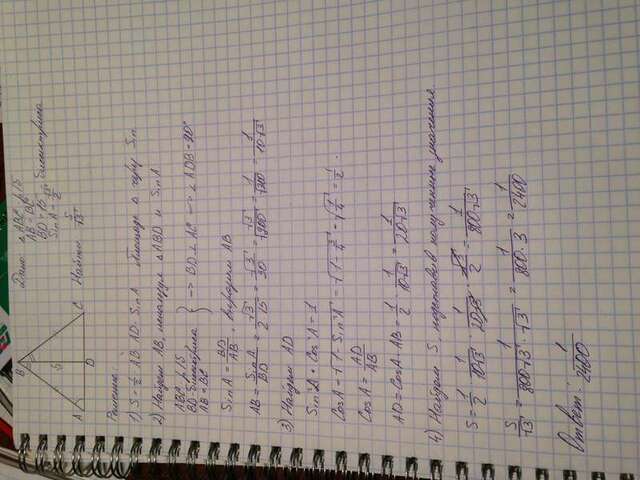 B
A
D
C
5
Дано: △ABC р/б
AB = BC
BD = 15
Sin A = √3/2
Найти: S/√3
Решение:
1) S = 1/2 AB · AD · Sin A
2) Найдем AB, используя △ABD и Sin A
△BC р/б
BD биссектриса
AB = BC
} → BD ⊥ AC → ∠ADB = 90°
Sin A = BD/AB выразим AB
AB = Sin A/BD = √3/2·15 = √3/30 = √3/√900 = 1/√300 = 1/10√3
3) Найдем AD
Sin²A + Cos²A = 1
Cos A = √1 - Sin²A = √1 - 3/4 = √1/4 = 1/2.
Cos A = AD/AB
AD = Cos A · AB = 1/2 · 1/10√3 = 1/20√3
4) Найдем S, подставив полученные значения.
S = 1/2 · 1/10√3 · 1/20√3 · √3/2 = 1/800√3
S/√3 = 1/800√3 · √3 = 1/800·3 = 1/2400
Ответ: 1/2400